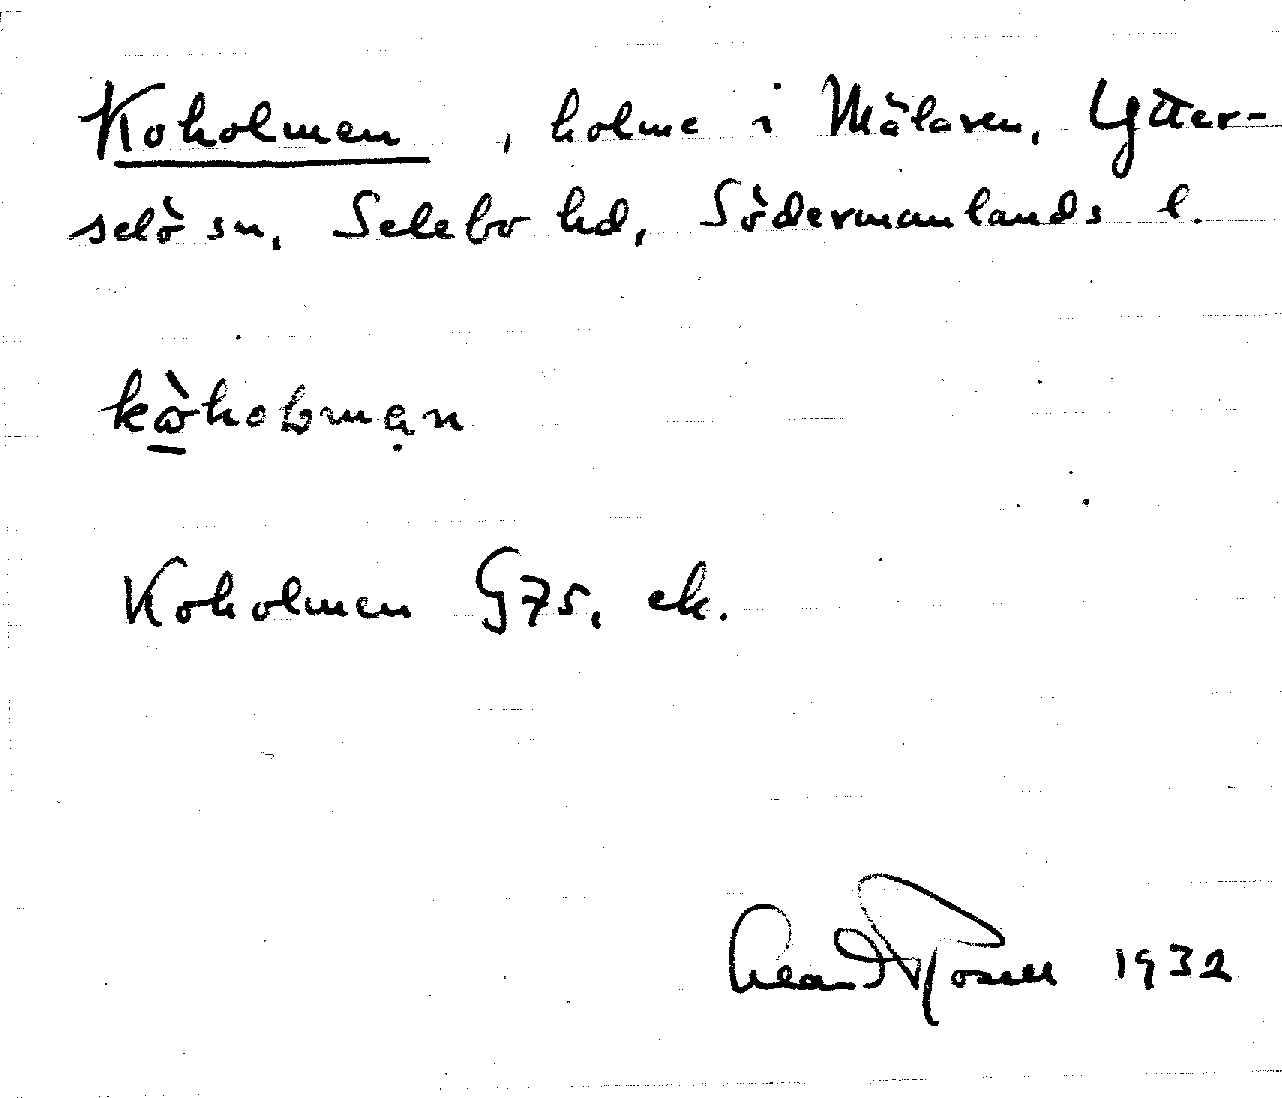 Koholmen, holme i Mälaren, Ytter-
selö sn, Selebo hd, Södermanlands l.
kòholman
Koholmen G75, ek.
1932